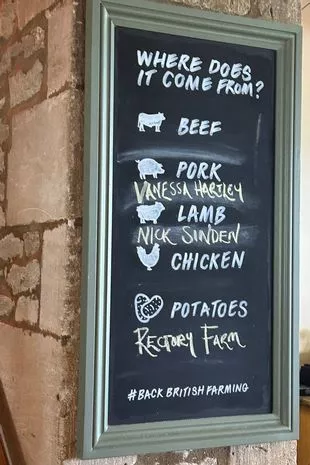 WHERE DOES
IT COME FROM?
BEEF
PORK
VANESSA HARTLEY
LAMB
NICK SINDEN
CHICKEN
POTATOES
RECTORY FARM
#BACK BRITISH FARMING